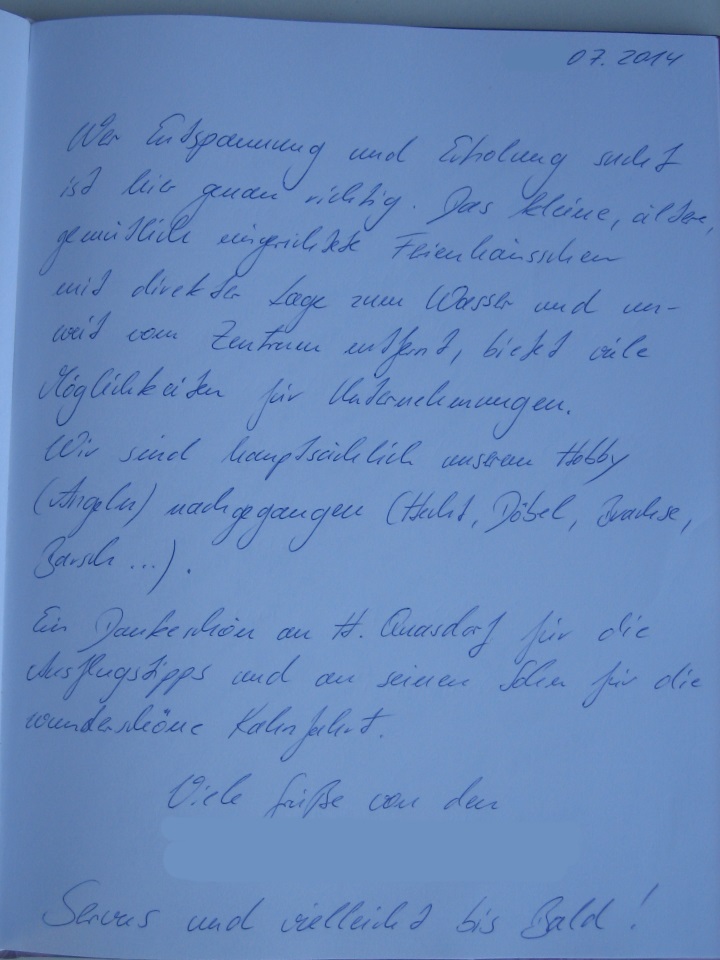 07.2014
Wer Entspannung und Erholung sucht
ist hier genau richtig. Das kleine, ältere,
gemütlich eingerichtete Feienhäusschen
mit direkter Lage zum Wasser und un-
weit vom Zentrum entfernt, bietet viele
Möglichkeiten für Unternehmungen.
Wir sind hauptsächlich unserem Hobby
(Angeln) nachgegangen (Hecht, Döbel, Brachse,
Barsch ...).
Ein Dankeschön an H. Quasdorf für die
Ausflugstipps und an seinen Sohn für die
wunderschöne Kahnfahrt.
Viele Grüße von den
Servus und vielleicht bis Bald!